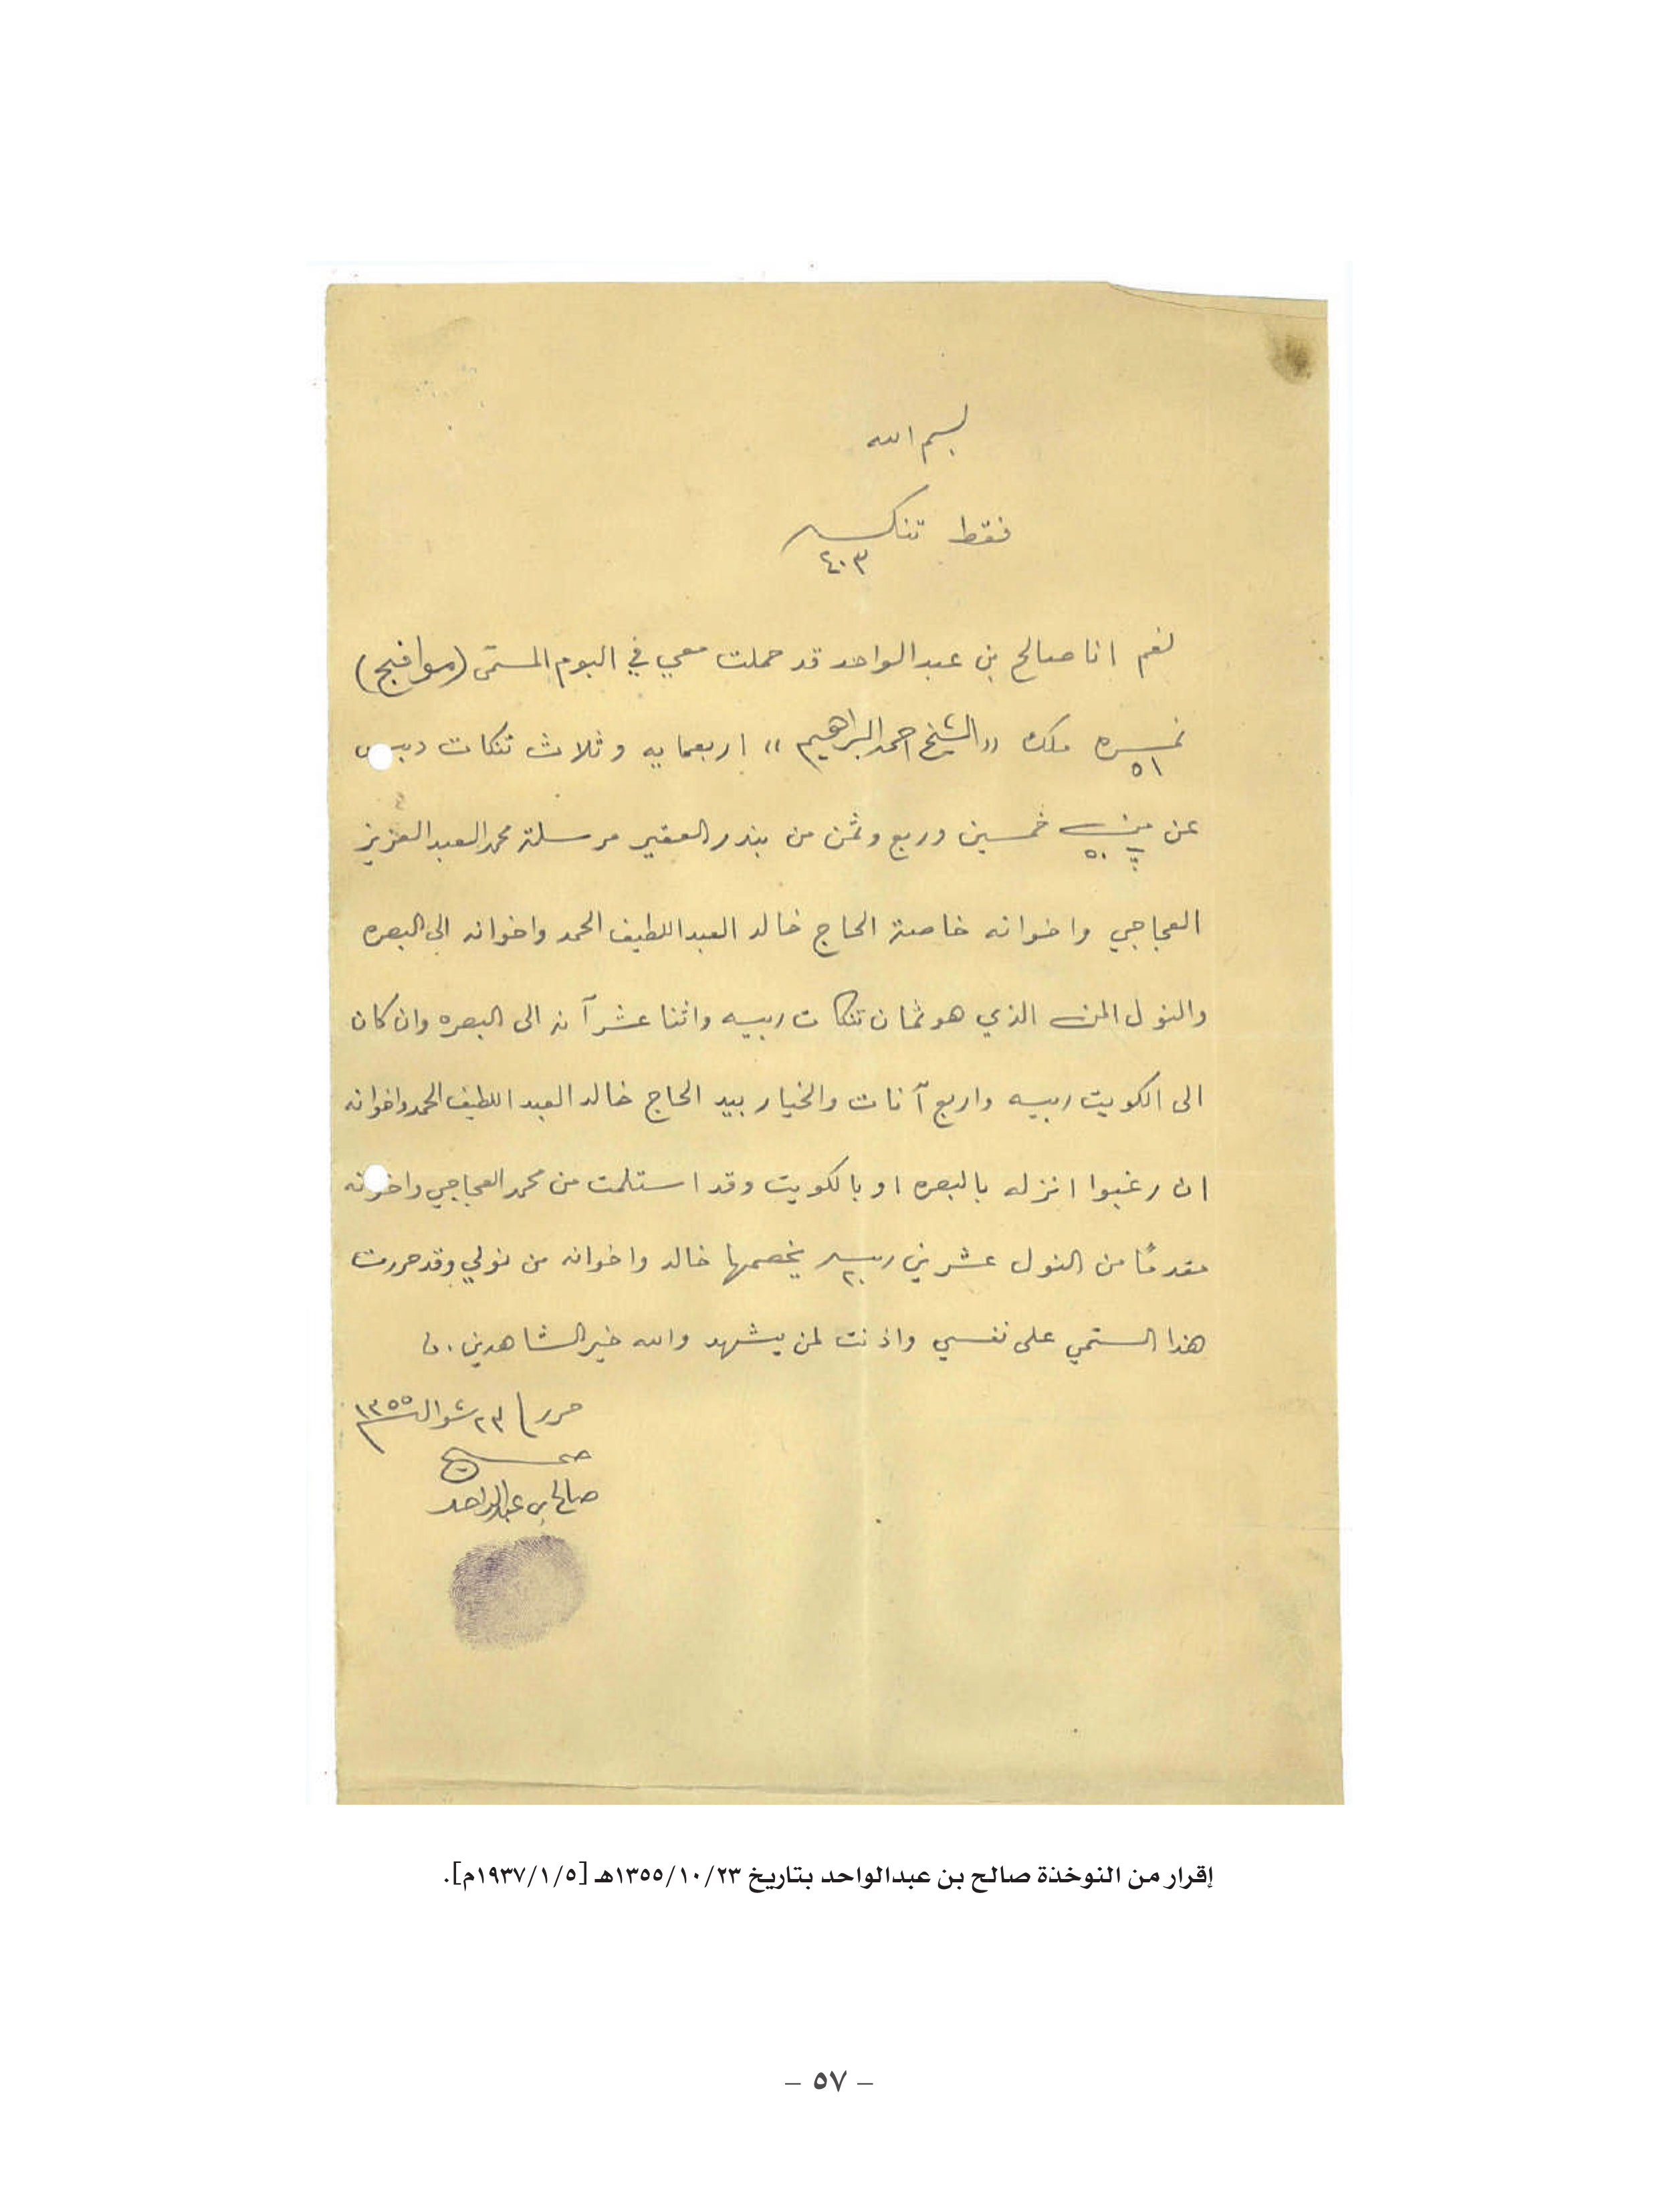 بسم الله
فقط تنكـــه
٤٠٣
نعم انا صالح بن عبدالواحد قد حملت معي في البوم المسمّى (موافج)
نمـــره ٥١ ملك "الشيخ احمد البراهيم" اربعمايه وثلاث تنكات دبس
عن منـــ ٥٠ خمسين وربع وثمن من بندر العقير مرسلة محمد العبدالعزيز
العجاجي واخوانه خاصة الحاج خالد العبداللطيف الحمد واخوانه الى البصره
والنول المنـ الذي هو ثمان تنكات ربيه واثنا عشر آنه الى البصره وان كان
الى الكويت ربيه واربع آنات والخيار بيد الحاج خالد العبداللطيف الحمد واخوانه
ان رغبوا انزله بالبصره او بالكويت وقد استلمت من محمد العجاجي واخوانه
مقدمًا من النول عشرين ربيه ٢٠ يخصمها خالد واخوانه من نولي وقد حررت
هذا الستمي على نفسي واذنت لمن يشهد والله خير الشاهدين.
حرر/ ٢٣ شوال سنة ١٣٥٥
صحـــيح
صالح بن عبدالواحد
إقرار من النوخذة صالح بن عبدالواحد بتاريخ ١٣٥٥/١٠/٢٣هـ [١٩٣٧/١/٥م].
– ٥٧ –